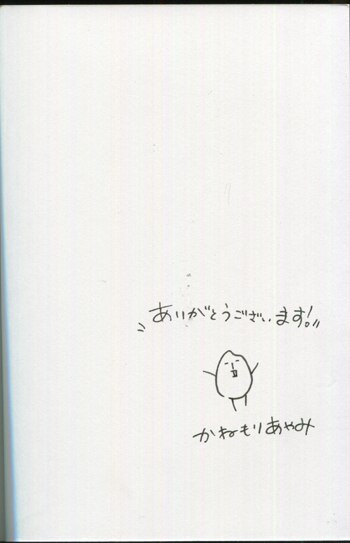 ありがとうございます!!
かねもりあやみ